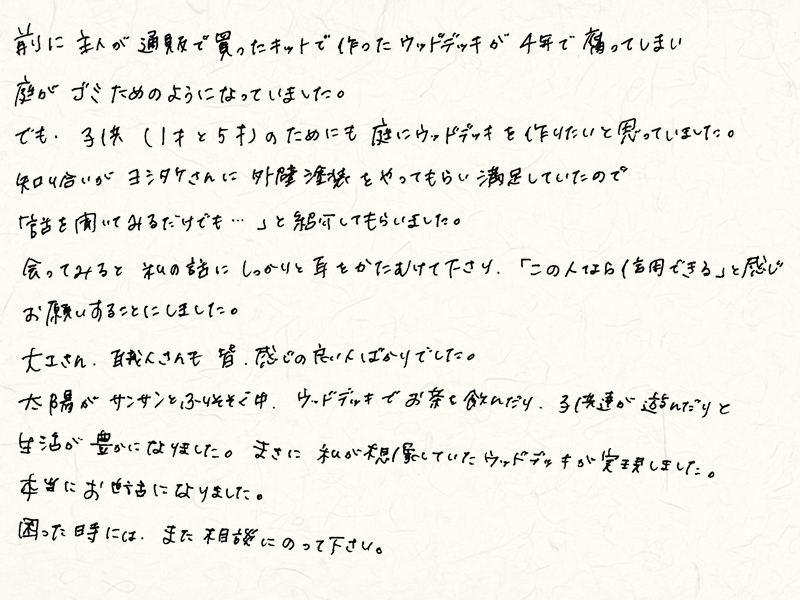 前に 主人が 通販で買ったキットで 作ったウッドデッキが 4年で 腐ってしまい
庭が ゴミためのようになっていました。
でも、子供 (1才と5才)のためにも 庭にウッドデッキを 作りたいと思っていました。
知り合いが ヨシタケさんに 外壁塗装をやってもらい 満足していたので
「話を聞いてみるだけでも…」と紹介してもらいました。
会ってみると 私の話に しっかりと耳をかたむけて下さり、「この人なら信用できる」と感じ
お願いすることにしました。
大工さん、職人さんも 皆、感じの良い人ばかりでした。
太陽が サンサンとふりそそぐ中、ウッドデッキで お茶を飲んだり、子供達が 遊んだりと
生活が 豊かになりました。まさに 私が想像していたウッドデッキが実現しました。
本当にお世話になりました。
困った時には、また相談にのって下さい。